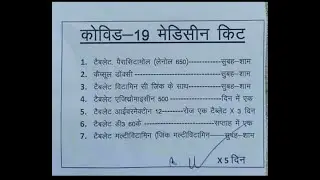 कोविड–19 मेडिसीन किट
1. टैबलेट पैरासिटामोल (लेनोल 650)-----------सुबह-शाम
2. कैप्सूल डॉक्सी --------------------------सुबह-शाम
3. टैबलेट विटामिन सी जिंक के साथ-----------सुबह-शाम
4. टैबलेट एजिथ्रोमाइसीन 500 ---------------दिन में एक
5. टैबलेट आईवरमेक्टीन 12-------रोज एक टैब्लेट X 3 दिन
6. टैबलेट डी3 60के ----------------------सप्ताह में एक
7. टैबलेट मल्टीविटामिन (जिंक मल्टीविटामिन------सुबह-शाम
X 5 दिन